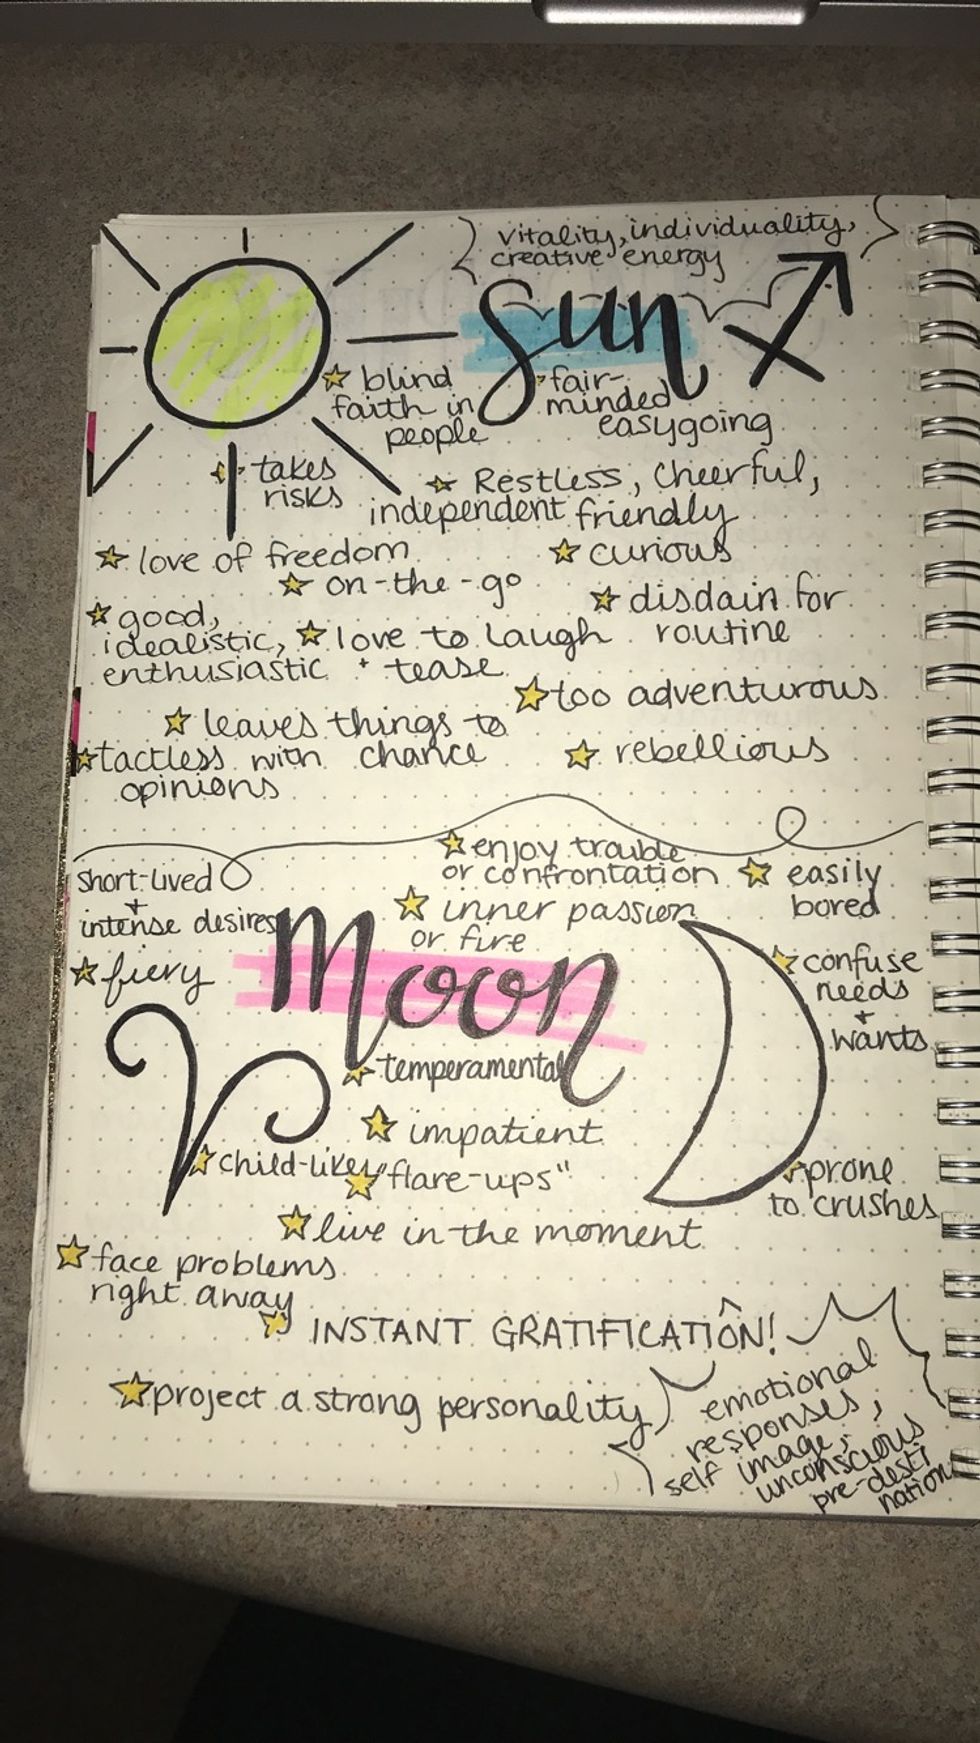 vitality, individuality,
creative energy
Sun
blind
faith in
people
fair-
minded
easygoing
takes
risks
Restless, Cheerful,
independent friendly
love of freedom
curious
on-the-go
disdain for
routine
good,
idealistic,
enthusiastic
love to laugh
+ tease
too adventurous
leaves things to
chance
tactless with
opinions
rebellious
short-lived
+
intense desires
enjoy trouble
or confrontation
easily
bored
inner passion
or fire
fiery
Moon
confuse
needs
+
wants
temperamental
impatient
child-like
"flare-ups"
prone
to crushes
live in the moment
face problems
right away
INSTANT GRATIFICATION!
project a strong personality
emotional
responses,
self image,
unconscious
pre-desti
nation